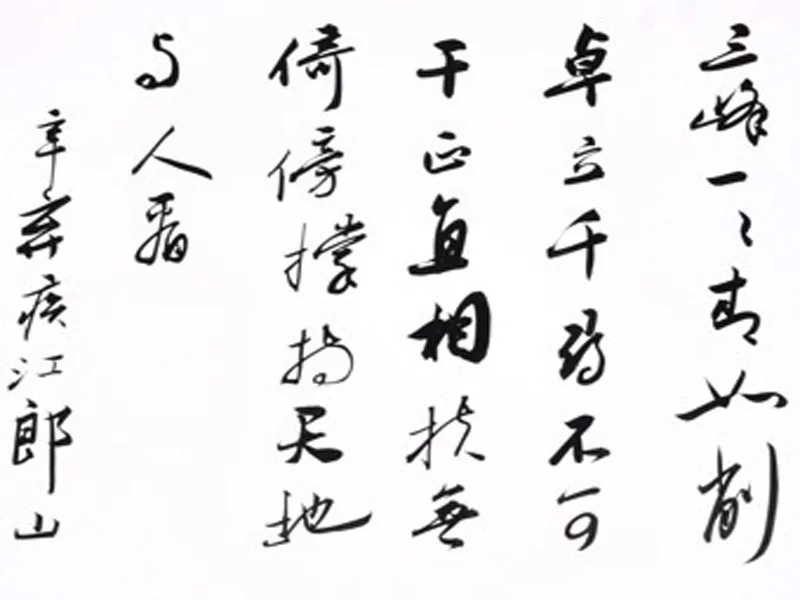 三峰一々青如削
卓立千尋不可
干正直相扶無
倚傍撐持天地
与人看
辛弃疾江郎山